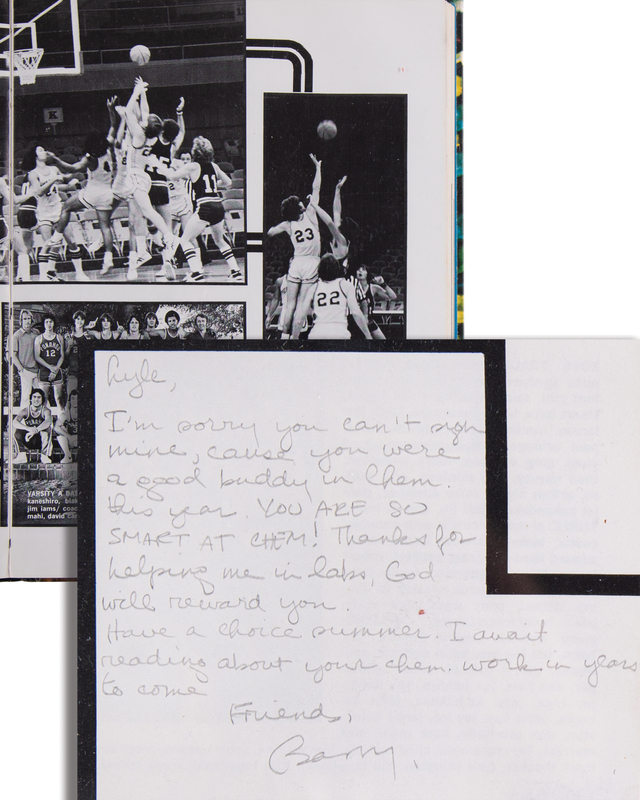 K
11
23
22
12
VARSITY A BAS
kaneshiro, blak
jim iams/ coac
mahi, david ca
Lyle,
I'm sorry you can't sign
mine, cause you were
a good buddy in Chem.
this year. YOU ARE SO
SMART AT CHEM! Thanks for
helping me in labs, God
will reward you.
Have a choice summer. I await
reading about your chem. work in years
to come
Friends,
Barry.